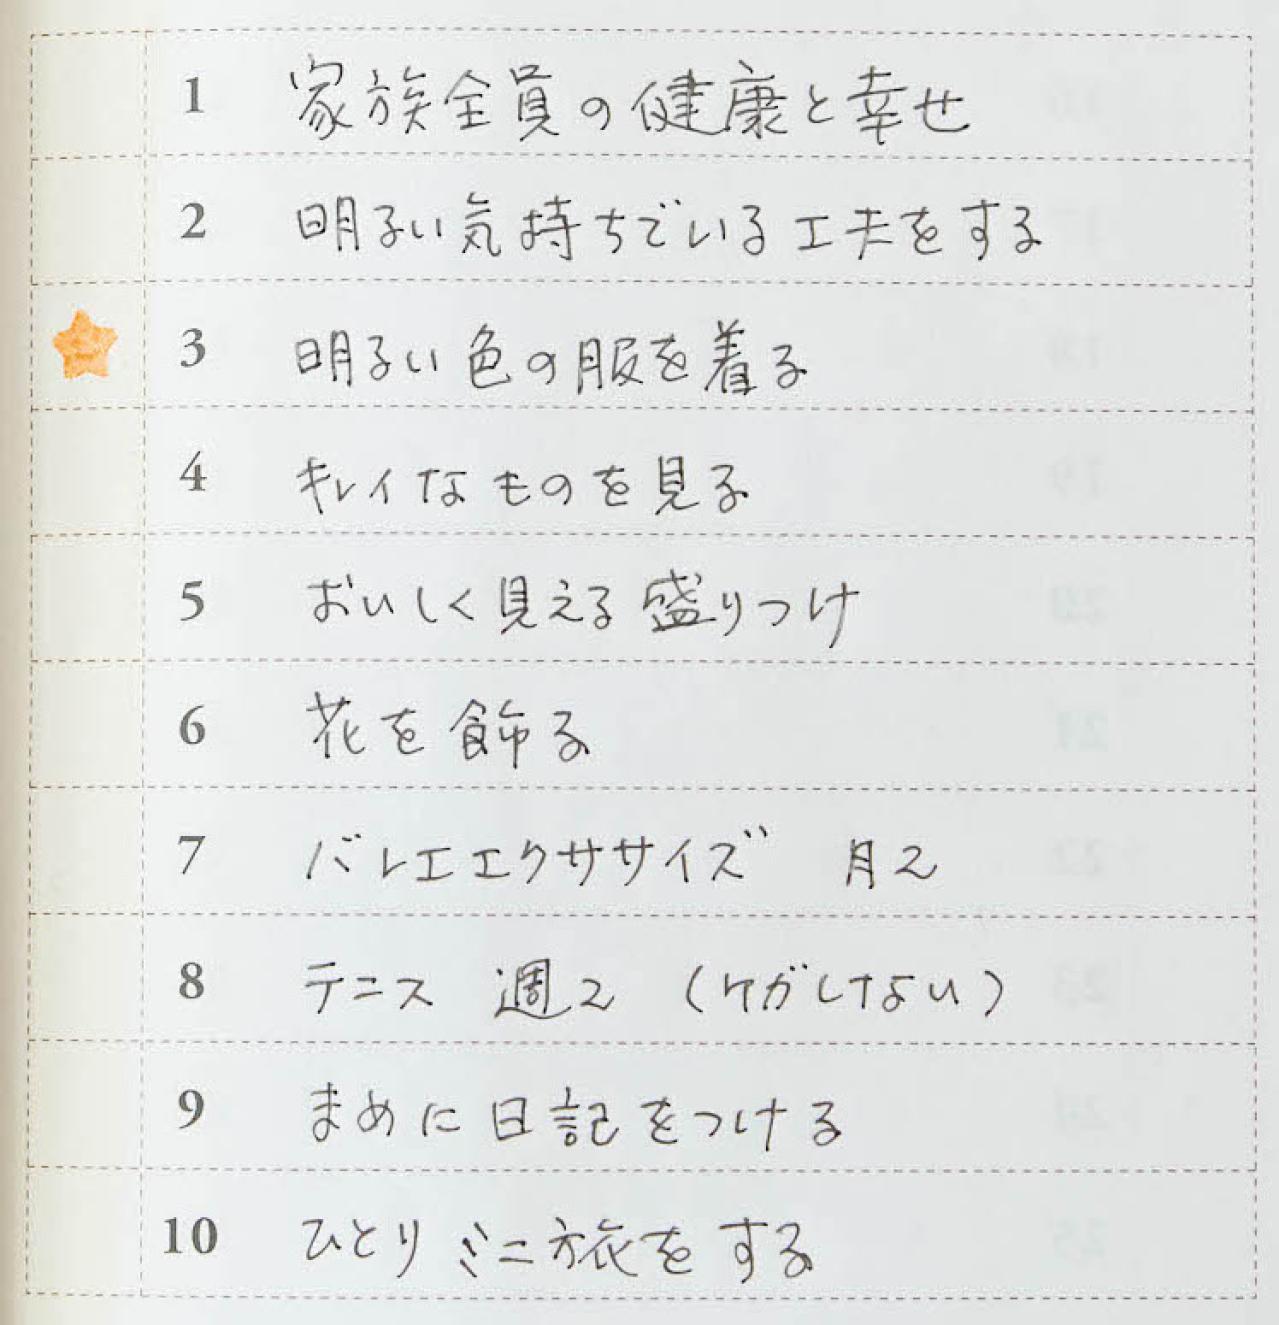 1 家族全員の健康と幸せ
2 明るい気持ちでいる工夫をする
3 明るい色の服を着る
4 キレイなものを見る
5 おいしく見える盛りつけ
6 花を飾る
7 バレエエクササイズ 月2
8 テニス 週2 (ケガしない)
9 まめに日記をつける
10 ひとりミニ旅をする